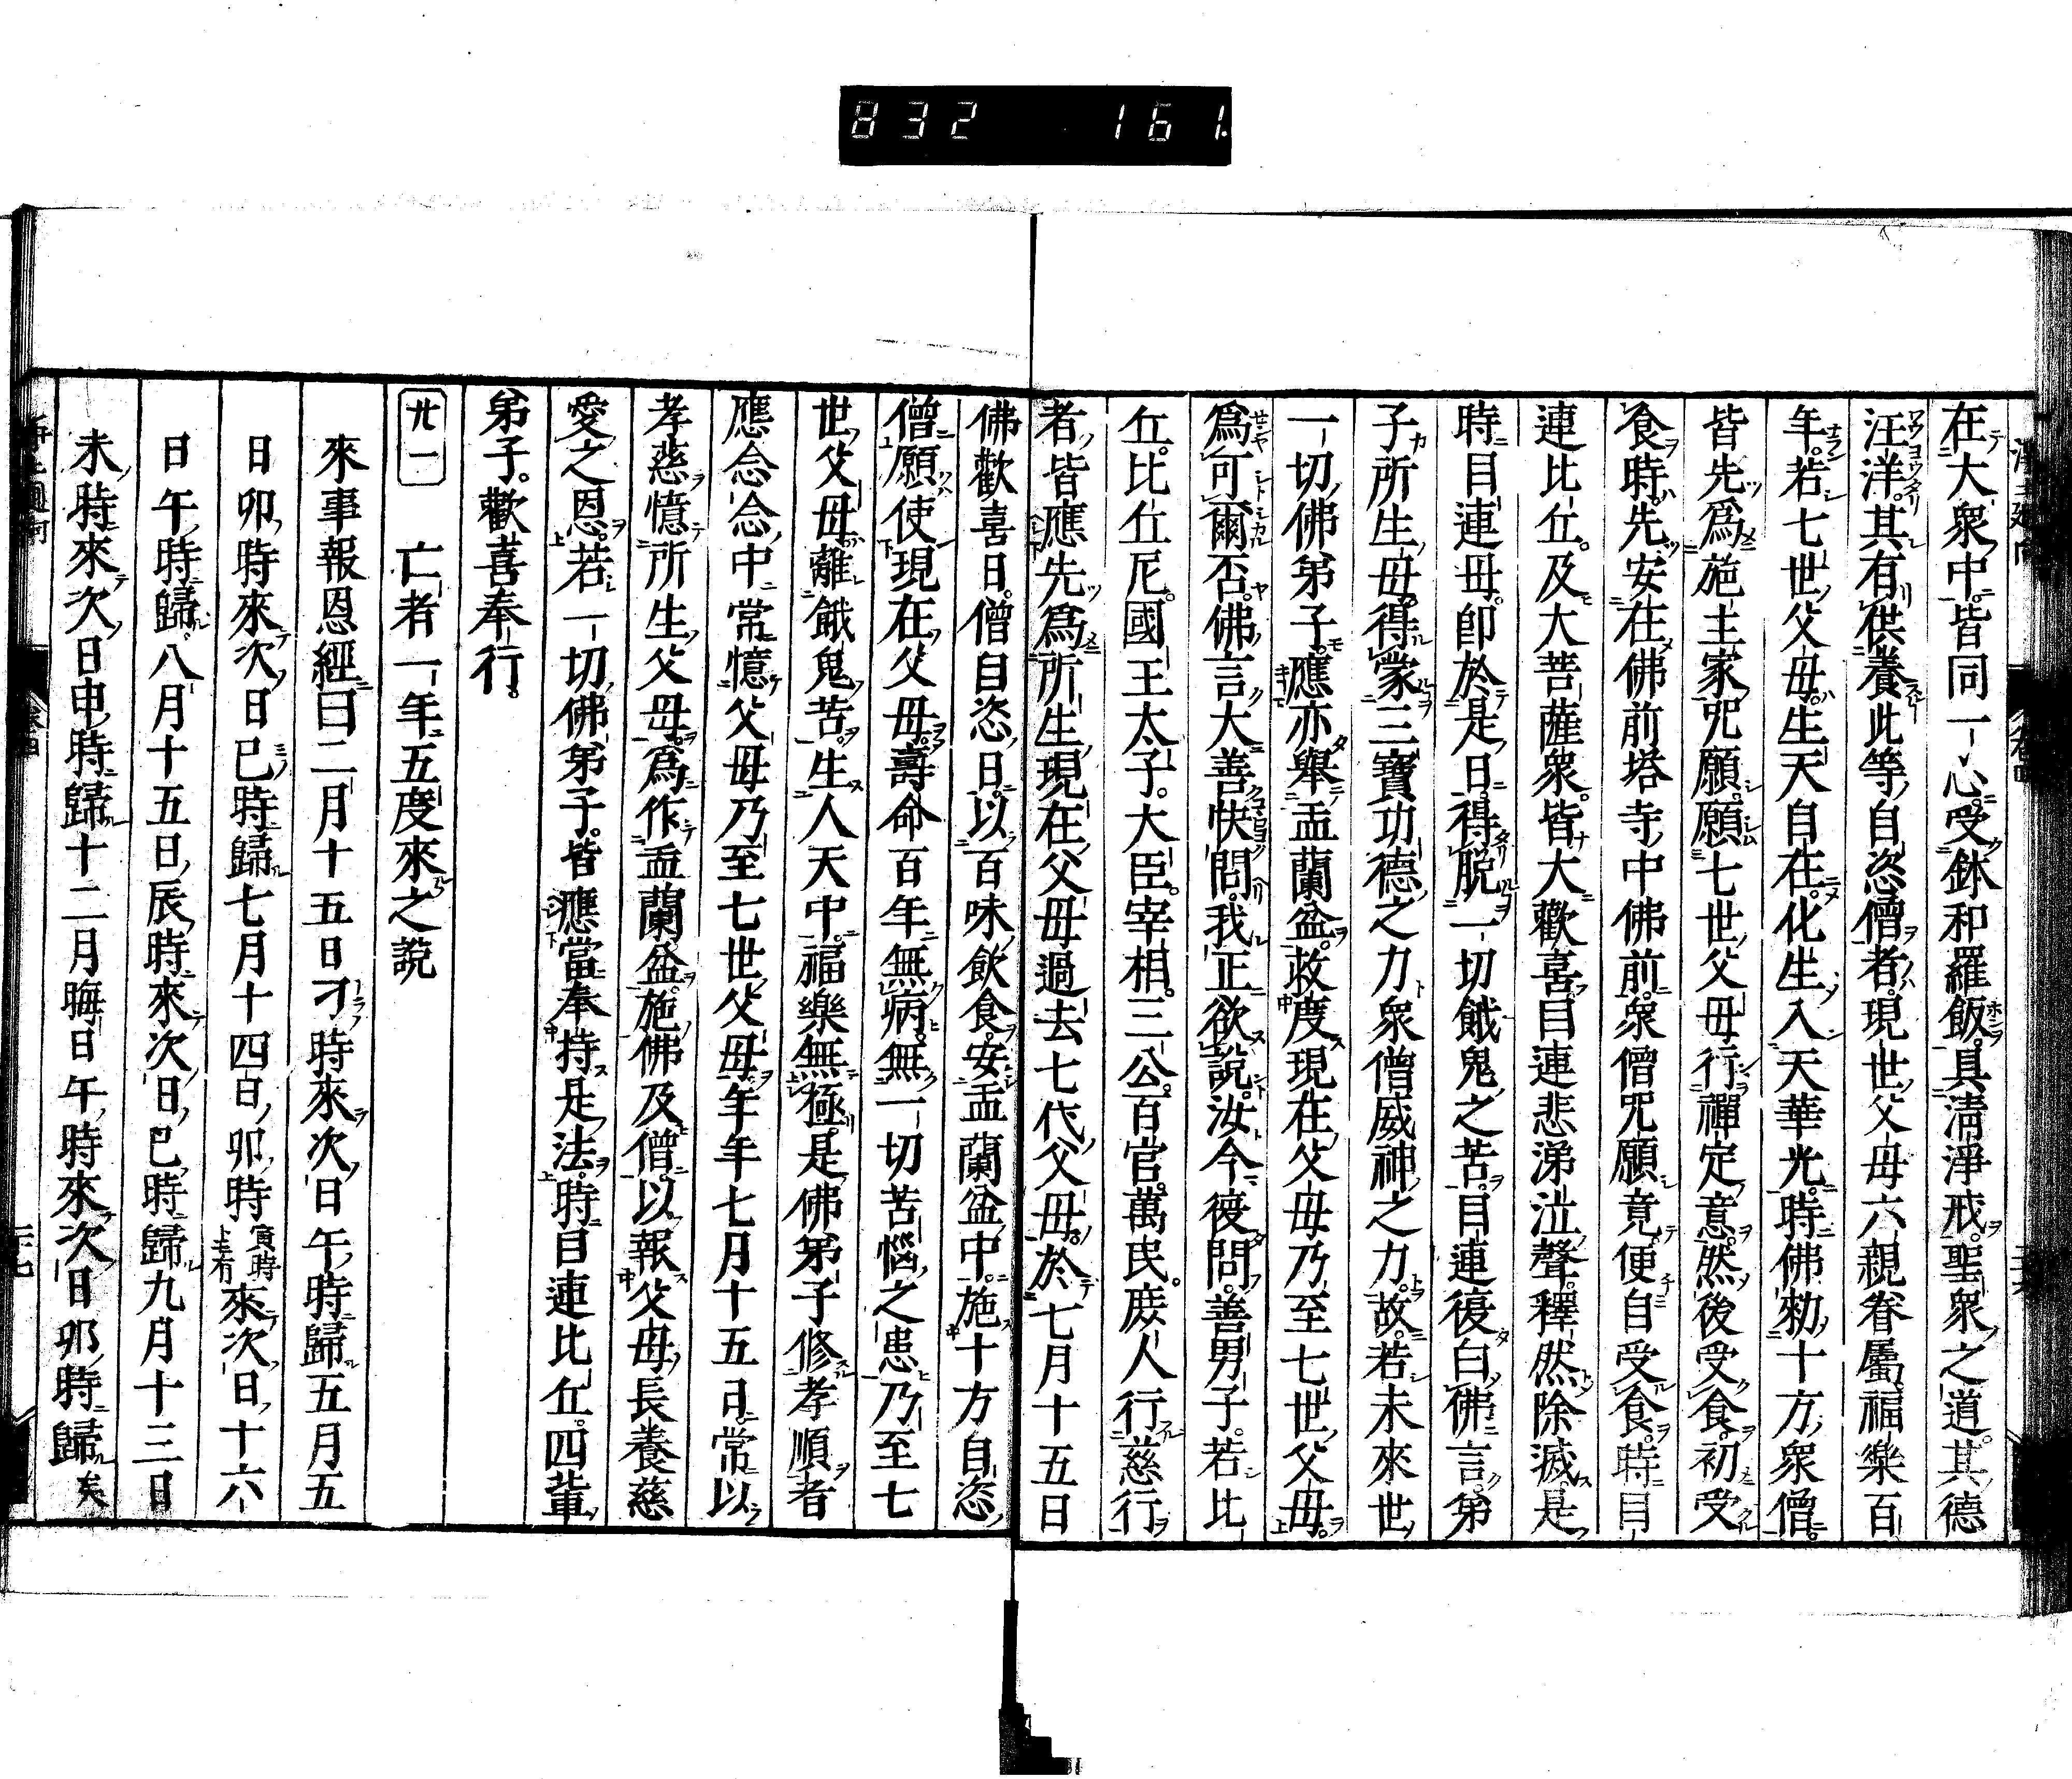 832 161.
在大衆中。皆同一心。受鉢和羅飯。具淸淨戒。聖衆之道。其德
汪洋。其有供養此等自恣僧者。現世父母六親眷屬。福樂百
年。若七世父母。生天自在。化生入天華光。時佛勑十方衆僧。
皆先爲施主家咒願。願七世父母。行禪定意。然後受食。初受
食時。先安在佛前塔寺中佛前。衆僧咒願竟。便自受食。時目
連比丘。及大菩薩衆。皆大歡喜。目連悲涕泣聲。釋然除滅。是
時目連母。卽於是日。得脱一切餓鬼之苦。目連復白佛言。弟
子所生母。得蒙三寶功德之力。衆僧威神之力。故。若未來世
一切佛弟子。應亦舉盂蘭盆。救度現在父母乃至七世父母。
爲可爾否。佛言大善快問。我正欲說。汝今復問。善男子。若比
丘。比丘尼。國王太子。大臣。宰相。三公。百官。萬民。庶人行慈行
者。皆應先爲所生現在父母過去七代父母。於七月十五日
佛歡喜日。僧自恣日。以百味飲食。安盂蘭盆中。施十方自恣
僧。願使現在父母。壽命百年無病。無一切苦惱之患。乃至七
世父母離餓鬼苦。生人天中。福樂無極。是佛弟子修孝順者
應念念中常憶父母乃至七世父母。年年七月十五日。常以
孝慈憶所生父母。爲作盂蘭盆。施佛及僧。以報父母長養慈
愛之恩。若一切佛弟子。皆應當奉持是法。時目連比丘。四輩
弟子。歡喜奉行。
廿一 亡者一年五度來之說
來事報恩經曰二月十五日刁時來次日午時歸五月五
日卯時來次日巳時歸七月十四日卯時寅時上有來次日十六
日午時歸八月十五日辰時來次日巳時歸九月十三日
未時來次日申時歸十二月晦日午時來次日卯時歸矣